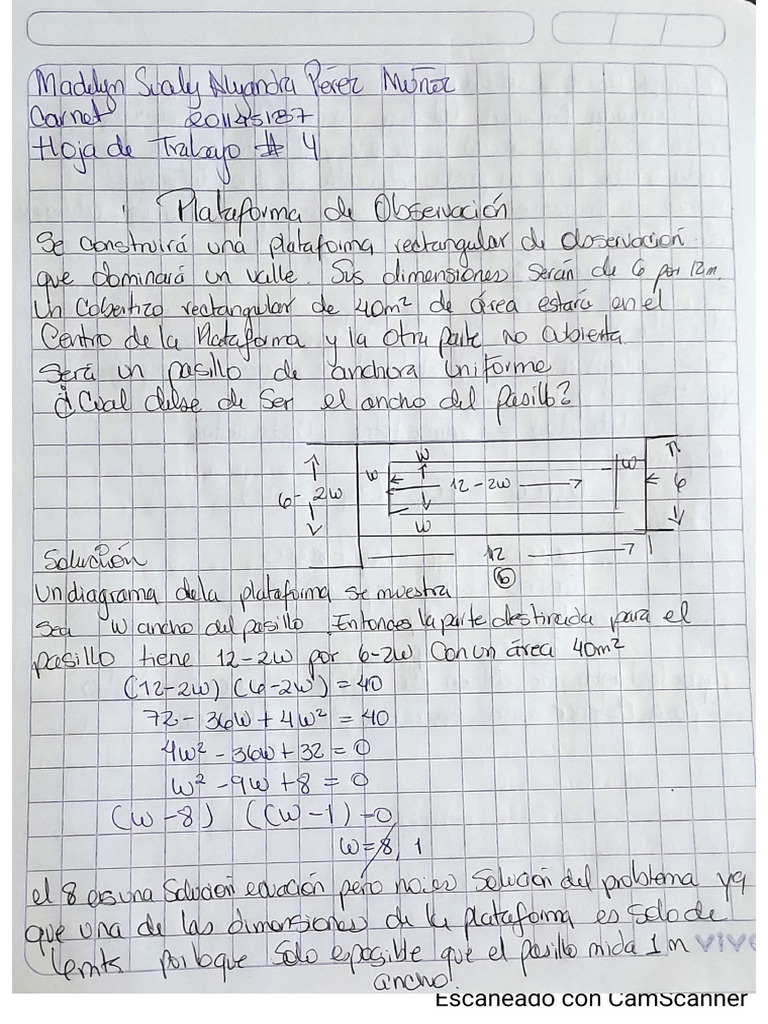 Madelyn Sualy Alejandra Pérez Muñoz
Carnet 201145187
Hoja de Trabajo # 4
Plataforma de Observación
Se construirá una plataforma rectangular de observación
que dominará un valle. Sus dimensiones serán de 6 por 12m.
Un Cobertizo rectangular de 40m² de área estará en el
Centro de la Plataforma y la otra parte no abierta
Será un pasillo de anchura Uniforme
¿Cual debe de Ser el ancho del pasillo?
w
w 12-2w w 6
6-2w
w
12
Solución
6
Un diagrama de la plataforma se muestra
Sea W ancho del pasillo. Entonces la parte destinada para el
pasillo tiene 12-2w por 6-2w Con un área 40m²
(12-2w) (6-2w) = 40
72-36w+4w² = 40
4w² - 36w + 32 = 0
w² - 9w + 8 = 0
(w-8) ((w-1) = 0
w = 8, 1
el 8 es una Solución ecuación pero no es Solución del problema ya
que una de las dimensiones de la plataforma es solo de
6mts por lo que Solo es posible que el pasillo mida 1m
ancho.
VIVE
Escaneado con CamScanner